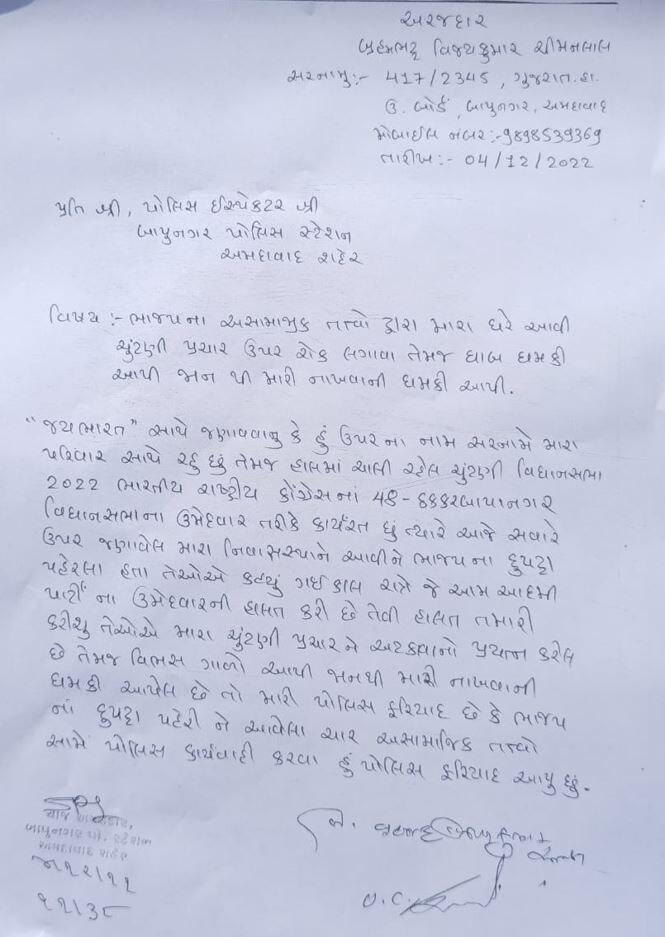 અરજદાર
બ્રહ્મભટ્ટ વિજયકુમાર ચીમનલાલ
સરનામુ:- 417/2345, ગુજરાત. હા.
ઉ. બોર્ડ, બાપુનગર, અમદાવાદ
મોબાઈલ નંબર:-9898539369
તારીખ:- 04/12/2022
પ્રતિ શ્રી, પોલિસ ઈસ્પેકટર શ્રી
બાપુનગર પોલિસ સ્ટેશન
અમદાવાદ શહેર
વિષય :- ભાજપના અસામાજીક તત્વો દ્વારા મારા ઘરે આવી
ચુંટણી પ્રચાર ઉપર રોક લગાવા તેમજ ધાબ ધમકી
આપી જાન થી મારી નાખવાની ધમકી આપી.
"જયભારત" સાથે જણાવવાનુ કે હું ઉપર ના નામ સરનામે મારા
પરિવાર સાથે રહુ છું તેમજ હાલમાં ચાલી રહેલ ચુંટણી વિધાનસભા
2022 ભારતીય રાષ્ટ્રીય કોંગ્રેસનાં 48-ઠક્કરબાપાનગર
વિધાનસભાના ઉમેદવાર તરીકે કાર્યરત છું ત્યારે આજે સવારે
ઉપર જણાવેલ મારા નિવાસસ્થાને આવીને ભાજપ ના દુપટ્ટા
પહેરેલા હતા તેઓએ કહ્યું ગઈ કાલ રાત્રે જે આમ આદમી
પાર્ટી ના ઉમેદવારની હાલત કરી છે તેવી હાલત તમારી
કરીશુ તેઓએ મારા ચુંટણી પ્રચાર ને અટકાવાનો પ્રયત્ન કરેલ
છે તેમજ બિભસ ગાળો આપી જાનથી મારી નાખવાની
ધમકી આપેલ છે તો મારી પોલિસ ફરિયાદ છે કે ભાજપ
નાં દુપટ્ટા પહેરી ને આવેલા ચાર અસામાજિક તત્વો
સામે પોલિસ કાર્યવાહી કરવા હું પોલિસ ફરિયાદ આપુ છું.
બાપુનગર પો. સ્ટેશન
અમદાવાદ શહેર
O.C.